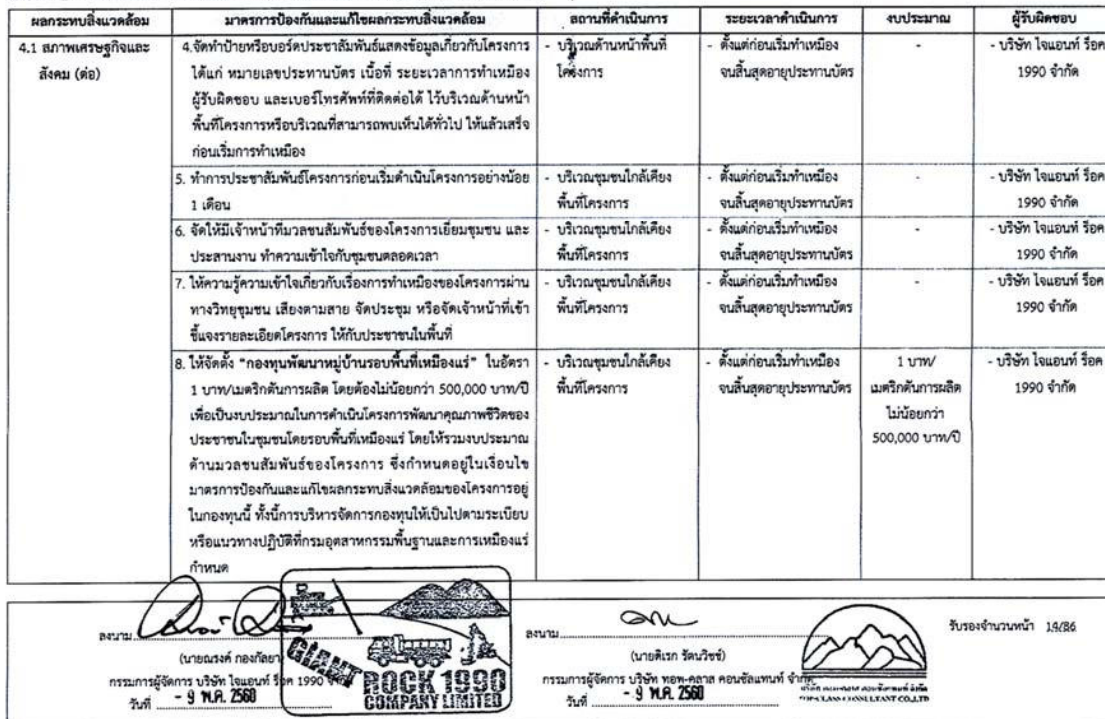 ผลกระทบสิ่งแวดล้อม
มาตรการป้องกันและแก้ไขผลกระทบสิ่งแวดล้อม
สถานที่ดำเนินการ
ระยะเวลาดำเนินการ
งบประมาณ
ผู้รับผิดชอบ
4.1 สภาพเศรษฐกิจและ
สังคม (ต่อ)
4.จัดทำป้ายหรือบอร์ดประชาสัมพันธ์แสดงข้อมูลเกี่ยวกับโครงการ
ได้แก่ หมายเลขประทานบัตร เนื้อที่ ระยะเวลาการทำเหมือง
ผู้รับผิดชอบ และเบอร์โทรศัพท์ที่ติดต่อได้ ไว้บริเวณด้านหน้า
พื้นที่โครงการหรือบริเวณที่สามารถพบเห็นได้ทั่วไป ให้แล้วเสร็จ
ก่อนเริ่มการทำเหมือง
- บริเวณด้านหน้าพื้นที่
โครงการ
- ตั้งแต่ก่อนเริ่มทำเหมือง
จนสิ้นสุดอายุประทานบัตร
-
- บริษัท ไจแอนท์ ร็อค
1990 จำกัด
5. ทำการประชาสัมพันธ์โครงการก่อนเริ่มดำเนินโครงการอย่างน้อย
1 เดือน
- บริเวณชุมชนใกล้เคียง
พื้นที่โครงการ
- ตั้งแต่ก่อนเริ่มทำเหมือง
จนสิ้นสุดอายุประทานบัตร
-
- บริษัท ไจแอนท์ ร็อค
1990 จำกัด
6. จัดให้มีเจ้าหน้าที่มวลชนสัมพันธ์ของโครงการเยี่ยมชุมชน และ
ประสานงาน ทำความเข้าใจกับชุมชนตลอดเวลา
- บริเวณชุมชนใกล้เคียง
พื้นที่โครงการ
- ตั้งแต่ก่อนเริ่มทำเหมือง
จนสิ้นสุดอายุประทานบัตร
-
- บริษัท ไจแอนท์ ร็อค
1990 จำกัด
7. ให้ความรู้ความเข้าใจเกี่ยวกับเรื่องการทำเหมืองของโครงการผ่าน
ทางวิทยุชุมชน เสียงตามสาย จัดประชุม หรือจัดเจ้าหน้าที่เข้า
ชี้แจงรายละเอียดโครงการ ให้กับประชาชนในพื้นที่
- บริเวณชุมชนใกล้เคียง
พื้นที่โครงการ
- ตั้งแต่ก่อนเริ่มทำเหมือง
จนสิ้นสุดอายุประทานบัตร
-
- บริษัท ไจแอนท์ ร็อค
1990 จำกัด
8. ให้จัดตั้ง "กองทุนพัฒนาหมู่บ้านรอบพื้นที่เหมืองแร่" ในอัตรา
1 บาท/เมตริกตันการผลิต โดยต้องไม่น้อยกว่า 500,000 บาท/ปี
เพื่อเป็นงบประมาณในการดำเนินโครงการพัฒนาคุณภาพชีวิตของ
ประชาชนในชุมชนโดยรอบพื้นที่เหมืองแร่ โดยให้รวมงบประมาณ
ด้านมวลชนสัมพันธ์ของโครงการ ซึ่งกำหนดอยู่ในเงื่อนไข
มาตรการป้องกันและแก้ไขผลกระทบสิ่งแวดล้อมของโครงการอยู่
ในกองทุนนี้ ทั้งนี้การบริหารจัดการกองทุนให้เป็นไปตามระเบียบ
หรือแนวทางปฏิบัติที่กรมอุตสาหกรรมพื้นฐานและการเหมืองแร่
กำหนด
- บริเวณชุมชนใกล้เคียง
พื้นที่โครงการ
- ตั้งแต่ก่อนเริ่มทำเหมือง
จนสิ้นสุดอายุประทานบัตร
1 บาท/
เมตริกตันการผลิต
ไม่น้อยกว่า
500,000 บาท/ปี
- บริษัท ไจแอนท์ ร็อค
1990 จำกัด
ลงนาม
(นายณรงค์ กองกัลยา)
กรรมการผู้จัดการ บริษัท ไจแอนท์ ร็อค 1990 จำกัด
วันที่ - 9 พ.ค. 2560
GIANT
ROCK 1990
COMPANY LIMITED
ลงนาม
(นายดิเรก รัตนวิชช์)
กรรมการผู้จัดการ บริษัท ทอพ-คลาส คอนซัลแทนท์ จำกัด
วันที่ - 9 พ.ค. 2560
บริษัท ทอพ-คลาส คอนซัลแทนท์ จำกัด
TOP-CLASS CONSULTANT CO.,LTD
รับรองจำนวนหน้า 14/86